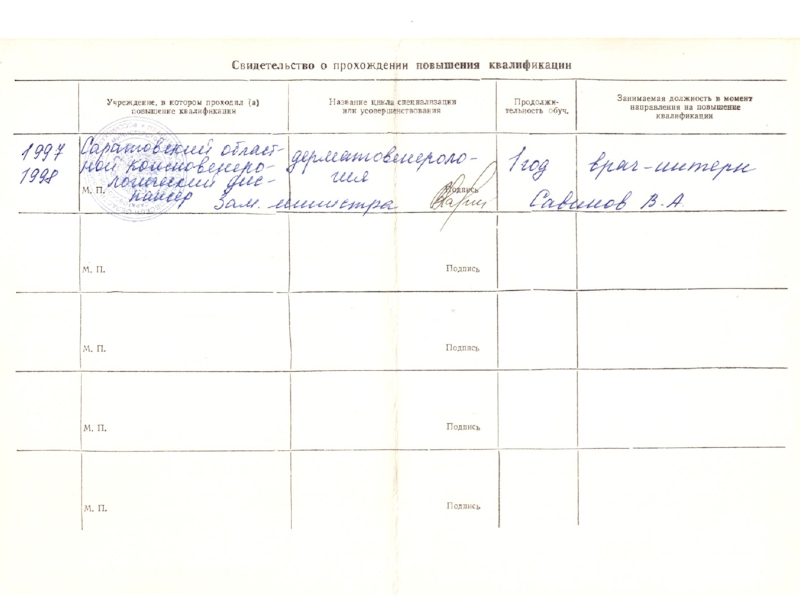 Свидетельство о прохождении повышения квалификации
Учреждение, в котором проходил (а)
повышение квалификации
Название цикла специализации
или усовершенствования
Продолжи-
тельность обуч.
Занимаемая должность в момент
направления на повышение
квалификации
1997
1998
Саратовский област-
ной кожновенеро-
логический дис-
пансер
дерматовенероло-
гия
1 год
врач-интерн
М. П.
Подпись
Зам. министра
Савинов В. А.
М. П.
Подпись
М. П.
Подпись
М. П.
Подпись
М. П.
Подпись